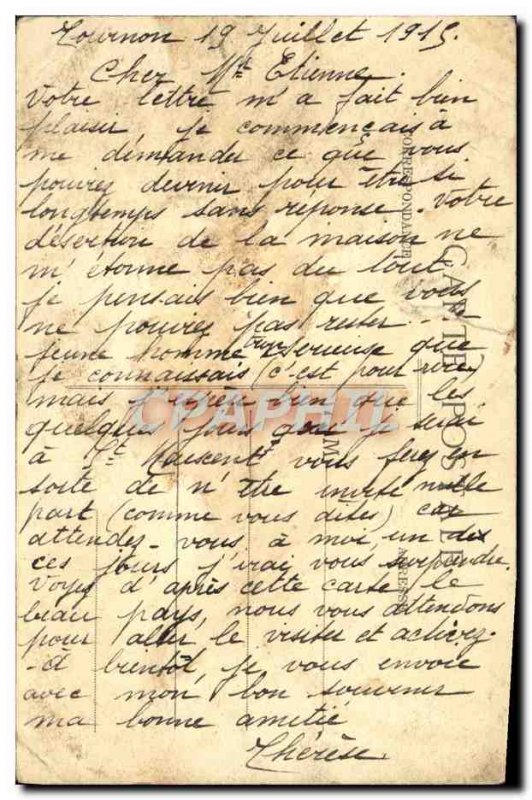 Tournon 19 Juillet 1915.
Cher Mr Etienne.
Votre lettre m'a fait bien
plaisir je commençais à
me demander ce que vous
pouviez devenir pour être si
longtemps sans réponse. Votre
désertion de la maison ne
m'étonne pas du tout
je pensais bien que vous
ne pouviez pas rester
jeune homme trop que
je connaissais (c'est pour rire)
mais bien que les
quelques jours que je serai
à St vous ferez en
sorte de n'être invité nulle
part (comme vous dites) car
attendez-vous à moi, un de
ces jours j'irai vous surprendre.
Voyez d'après cette carte le
beau pays, nous vous attendons
pour aller le visiter et activez.
-à bientôt, je vous envoie
avec mon bon souvenir
ma bonne amitié
Thérèse
CORRESPONDANCE
CARTE POSTALE
ADRESSE
CPAPHIL
.COM